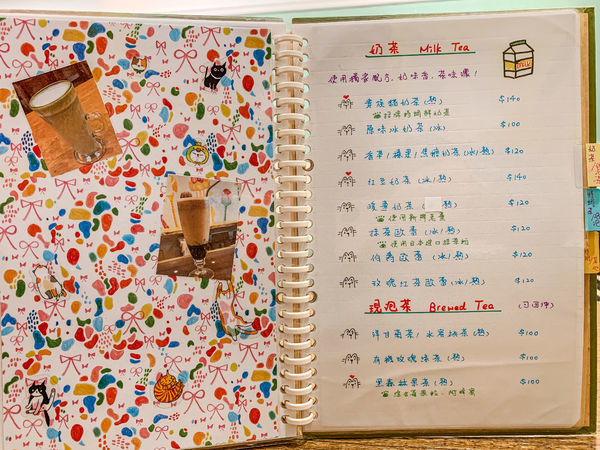 奶茶 Milk Tea
milk
使用獨家配方,奶味香,茶味濃!
貴族貓奶茶(熱) $140
招牌的鍋鮮奶煮
原味冰奶茶(冰) $100
香草/榛果/焦糖奶茶(冰/熱) $120
紅豆奶茶(冰/熱) $140
暖薑奶茶(熱) $120
使用新鮮老薑
抹茶歐蕾(冰/熱) $120
使用日本進口抹茶粉
伯爵歐蕾(冰/熱) $120
玫瑰紅茶歐蕾(冰/熱) $120
現泡茶 Brewed Tea (可回沖)
洋甘菊茶/水客抹茶(熱) $100
有機玫瑰綠茶(熱) $100
黑森林果茶(熱) $100
奶茶